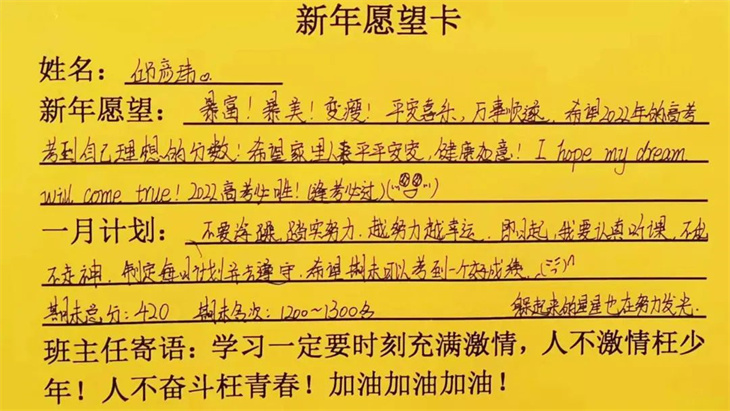 新年愿望卡
姓名：邱彦玮。
新年愿望：暴富！暴美！变瘦！平安喜乐，万事顺遂，希望2022年的高考
考到自己理想的分数！希望家里人平平安安，健康如意！I hope my dream
will come true！2022高考必胜！逢考必过
一月计划：不要浮躁，踏实努力，越努力越幸运。即日起，我要认真听课，不
不走神，制定每日计划并去遵守，希望期末可以考到一个好成绩。
期末总分：420 期末名次：1200～1300名 躲起来的星星也在努力发光。
班主任寄语：学习一定要时刻充满激情，人不激情枉少
年！人不奋斗枉青春！加油加油加油！